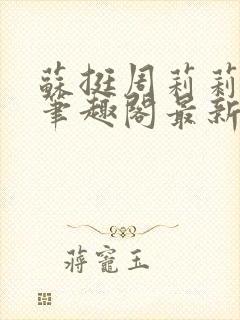 蘇挺周莉莉
筆趣閣最新
蔣寵玉